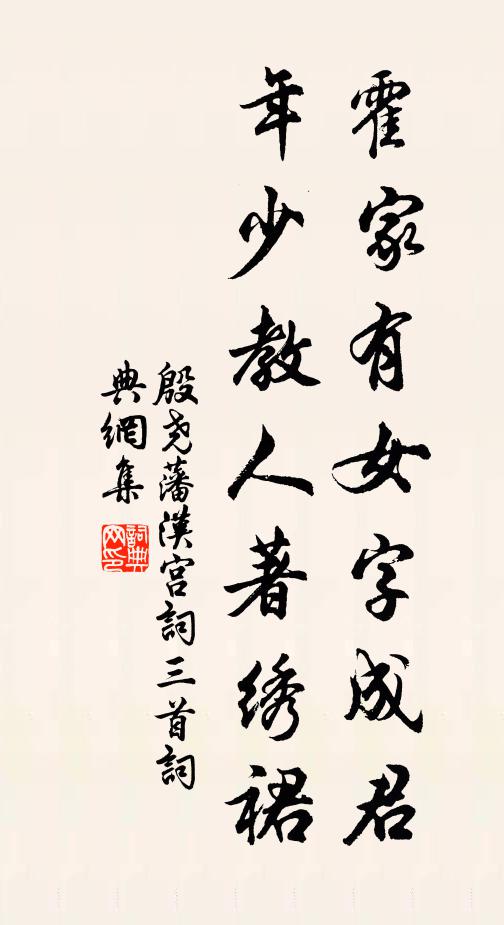 霍家有女字成君
年少教人著绣裙
殷尧藩漢宫詞三首詞
典網集
詞典
网印